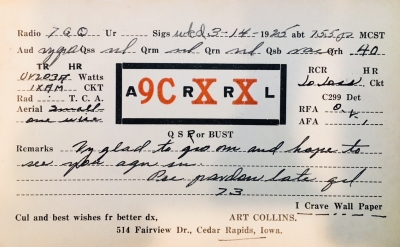 Radio 7GQ Ur Sigs wkd 3-14-1925 abt 755 MCST
Aud Qss nl Qrm nl Qrn nl Qsb Qrh 40
TR HR
UV203A Watts
1XAM CKT
Rad T. C. A.
Aerial small
one wire
A9CRXRXL
RCR HR
Lo loss Ckt
C299 Det
RFA 0
AFA 1
Q S R or BUST
Remarks Vy glad to qso om and hope to
see you agn sn.
Pse pardon late qsl
73
I Crave Wall Paper
Cul and best wishes fr better dx, ART COLLINS.
514 Fairview Dr., Cedar Rapids, Iowa.